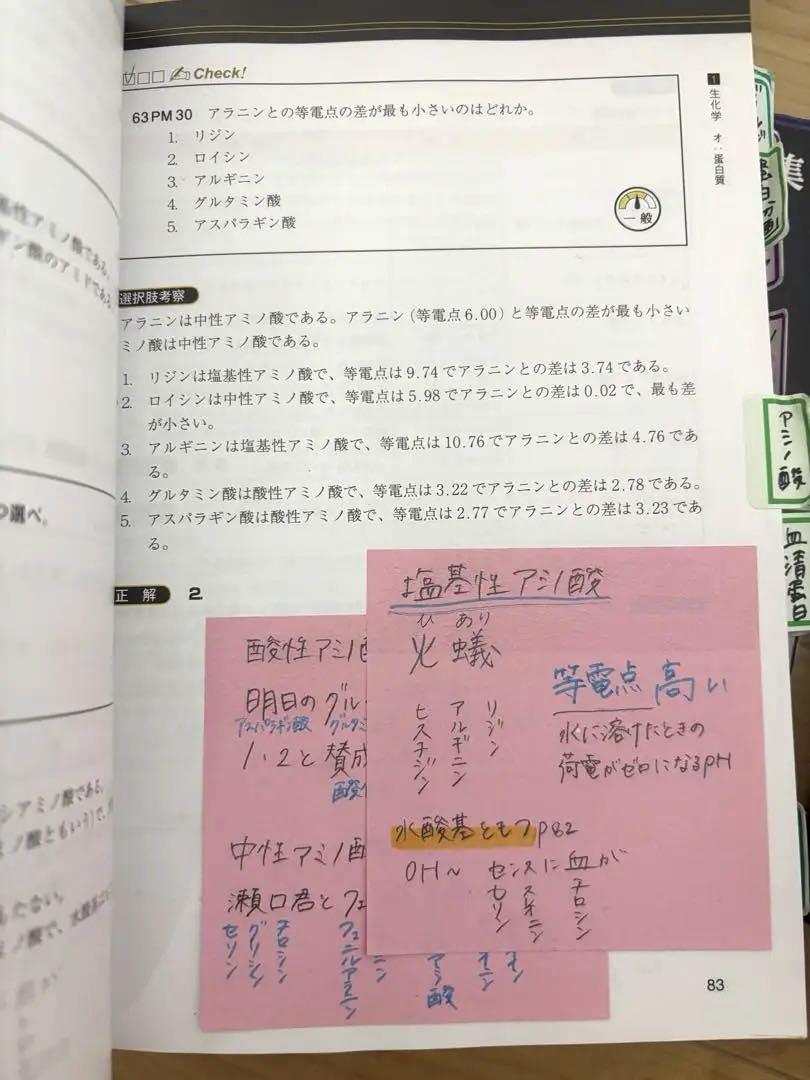 Check!
63PM30 アラニンとの等電点の差が最も小さいのはどれか。
1. リジン
2. ロイシン
3. アルギニン
4. グルタミン酸
5. アスパラギン酸
一般
1 生化学 オ:蛋白質
選択肢考察
アラニンは中性アミノ酸である。アラニン(等電点6.00)と等電点の差が最も小さい
ミノ酸は中性アミノ酸である。
1. リジンは塩基性アミノ酸で、等電点は9.74でアラニンとの差は3.74である。
2. ロイシンは中性アミノ酸で、等電点は5.98でアラニンとの差は0.02で、最も差
が小さい。
3. アルギニンは塩基性アミノ酸で、等電点は10.76でアラニンとの差は4.76であ
る。
4. グルタミン酸は酸性アミノ酸で、等電点は3.22でアラニンとの差は2.78である。
5. アスパラギン酸は酸性アミノ酸で、等電点は2.77でアラニンとの差は3.23であ
る。
正解 2
塩基性アミノ酸
ひ あり
火 蟻
ヒスチジン
アルギニン
リジン
等電点 高い
水に溶けたときの
荷電がゼロになるpH
水酸基ともつP82
OH〜 センスに血が
セリン
スオニン
チロシン
酸性アミノ酸
明日のグル
アスパラギン酸 グルタミ
1、2と賛成
酸
中性アミノ酸
瀬口君とフェ
セリン
グリシン
チロシン
フェニルアラニン
ニン
アミノ酸
83
アミノ酸
血清蛋白
集
基性アミノ酸である。
ギン酸のアミドである
つ選べ。
シアミノ酸である。
ミノ酸ともいう)で、
もたない。
ミノ酸で、水酸基は